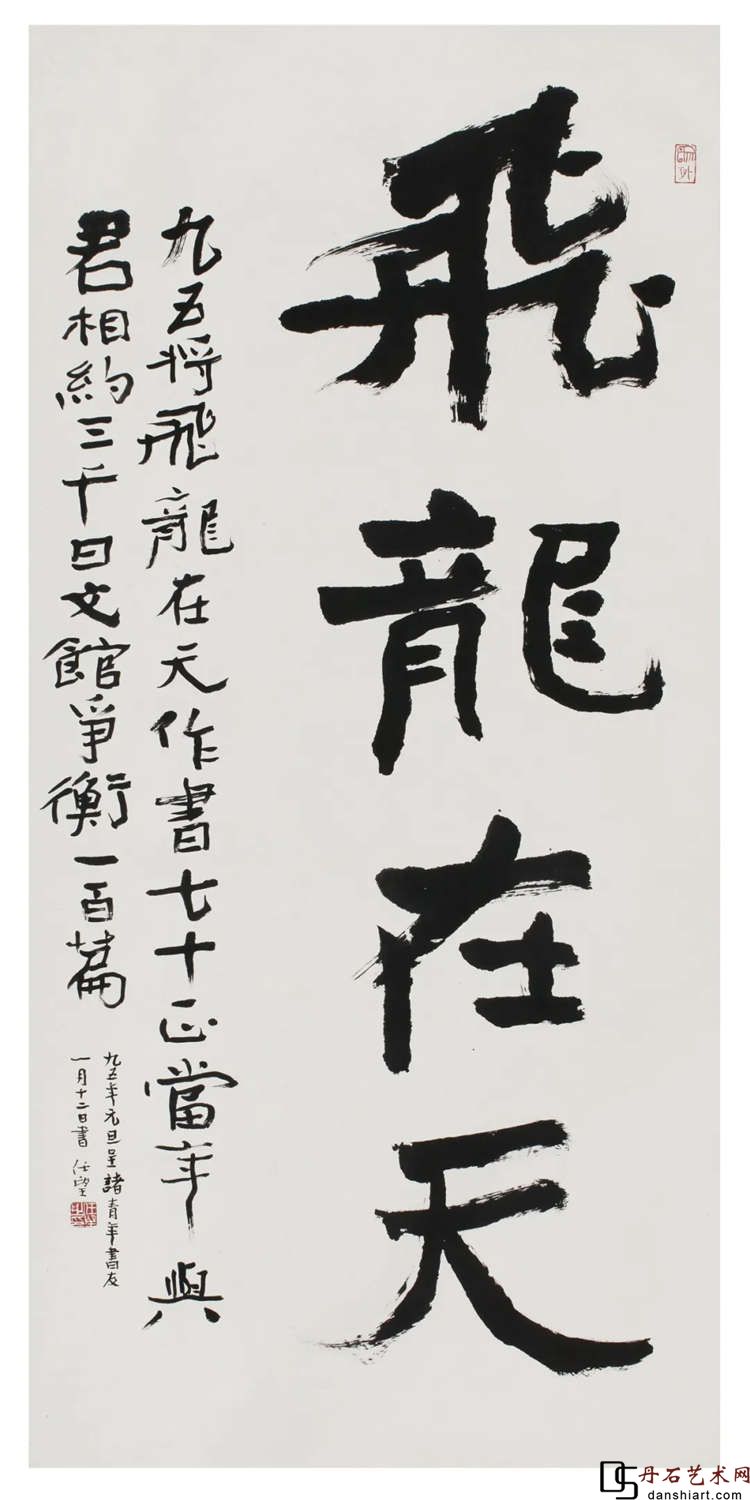 飛龍在天
九五将飛龍在天作書七十正當年與
君相約三千日文館爭衡一百篇
九五年元旦呈諸青年書友
一月十二日書 任望
丹石艺术网
danshiart.com